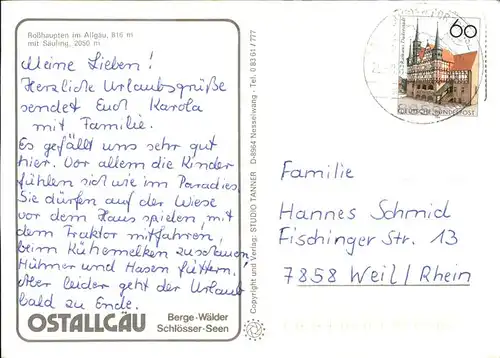 Roßhaupten im Allgäu, 816 m
mit Säuling, 2050 m
Meine Lieben!
Herzliche Urlaubsgrüße
sendet Euch Karola
mit Familie.
Es gefällt uns sehr gut
hier. Vor allem die Kinder
fühlen sich wie im Paradies.
Sie dürfen auf der Wiese
vor dem Haus spielen, mit
dem Traktor mitfahren,
beim Kühemelken zuschauen,
Hühner und Hasen füttern.
Aber leider geht der Urlaub
bald zu Ende.
OSTALLGÄU
Berge-Wälder
Schlösser-Seen
Copyright und Verlag: STUDIO TANNER D-8964 Nesselwang · Tel. 0 83 61 / 777
60
DEUTSCHE BUNDESPOST
Familie
Hannes Schmid
Fischinger Str. 13
7858 Weil/Rhein